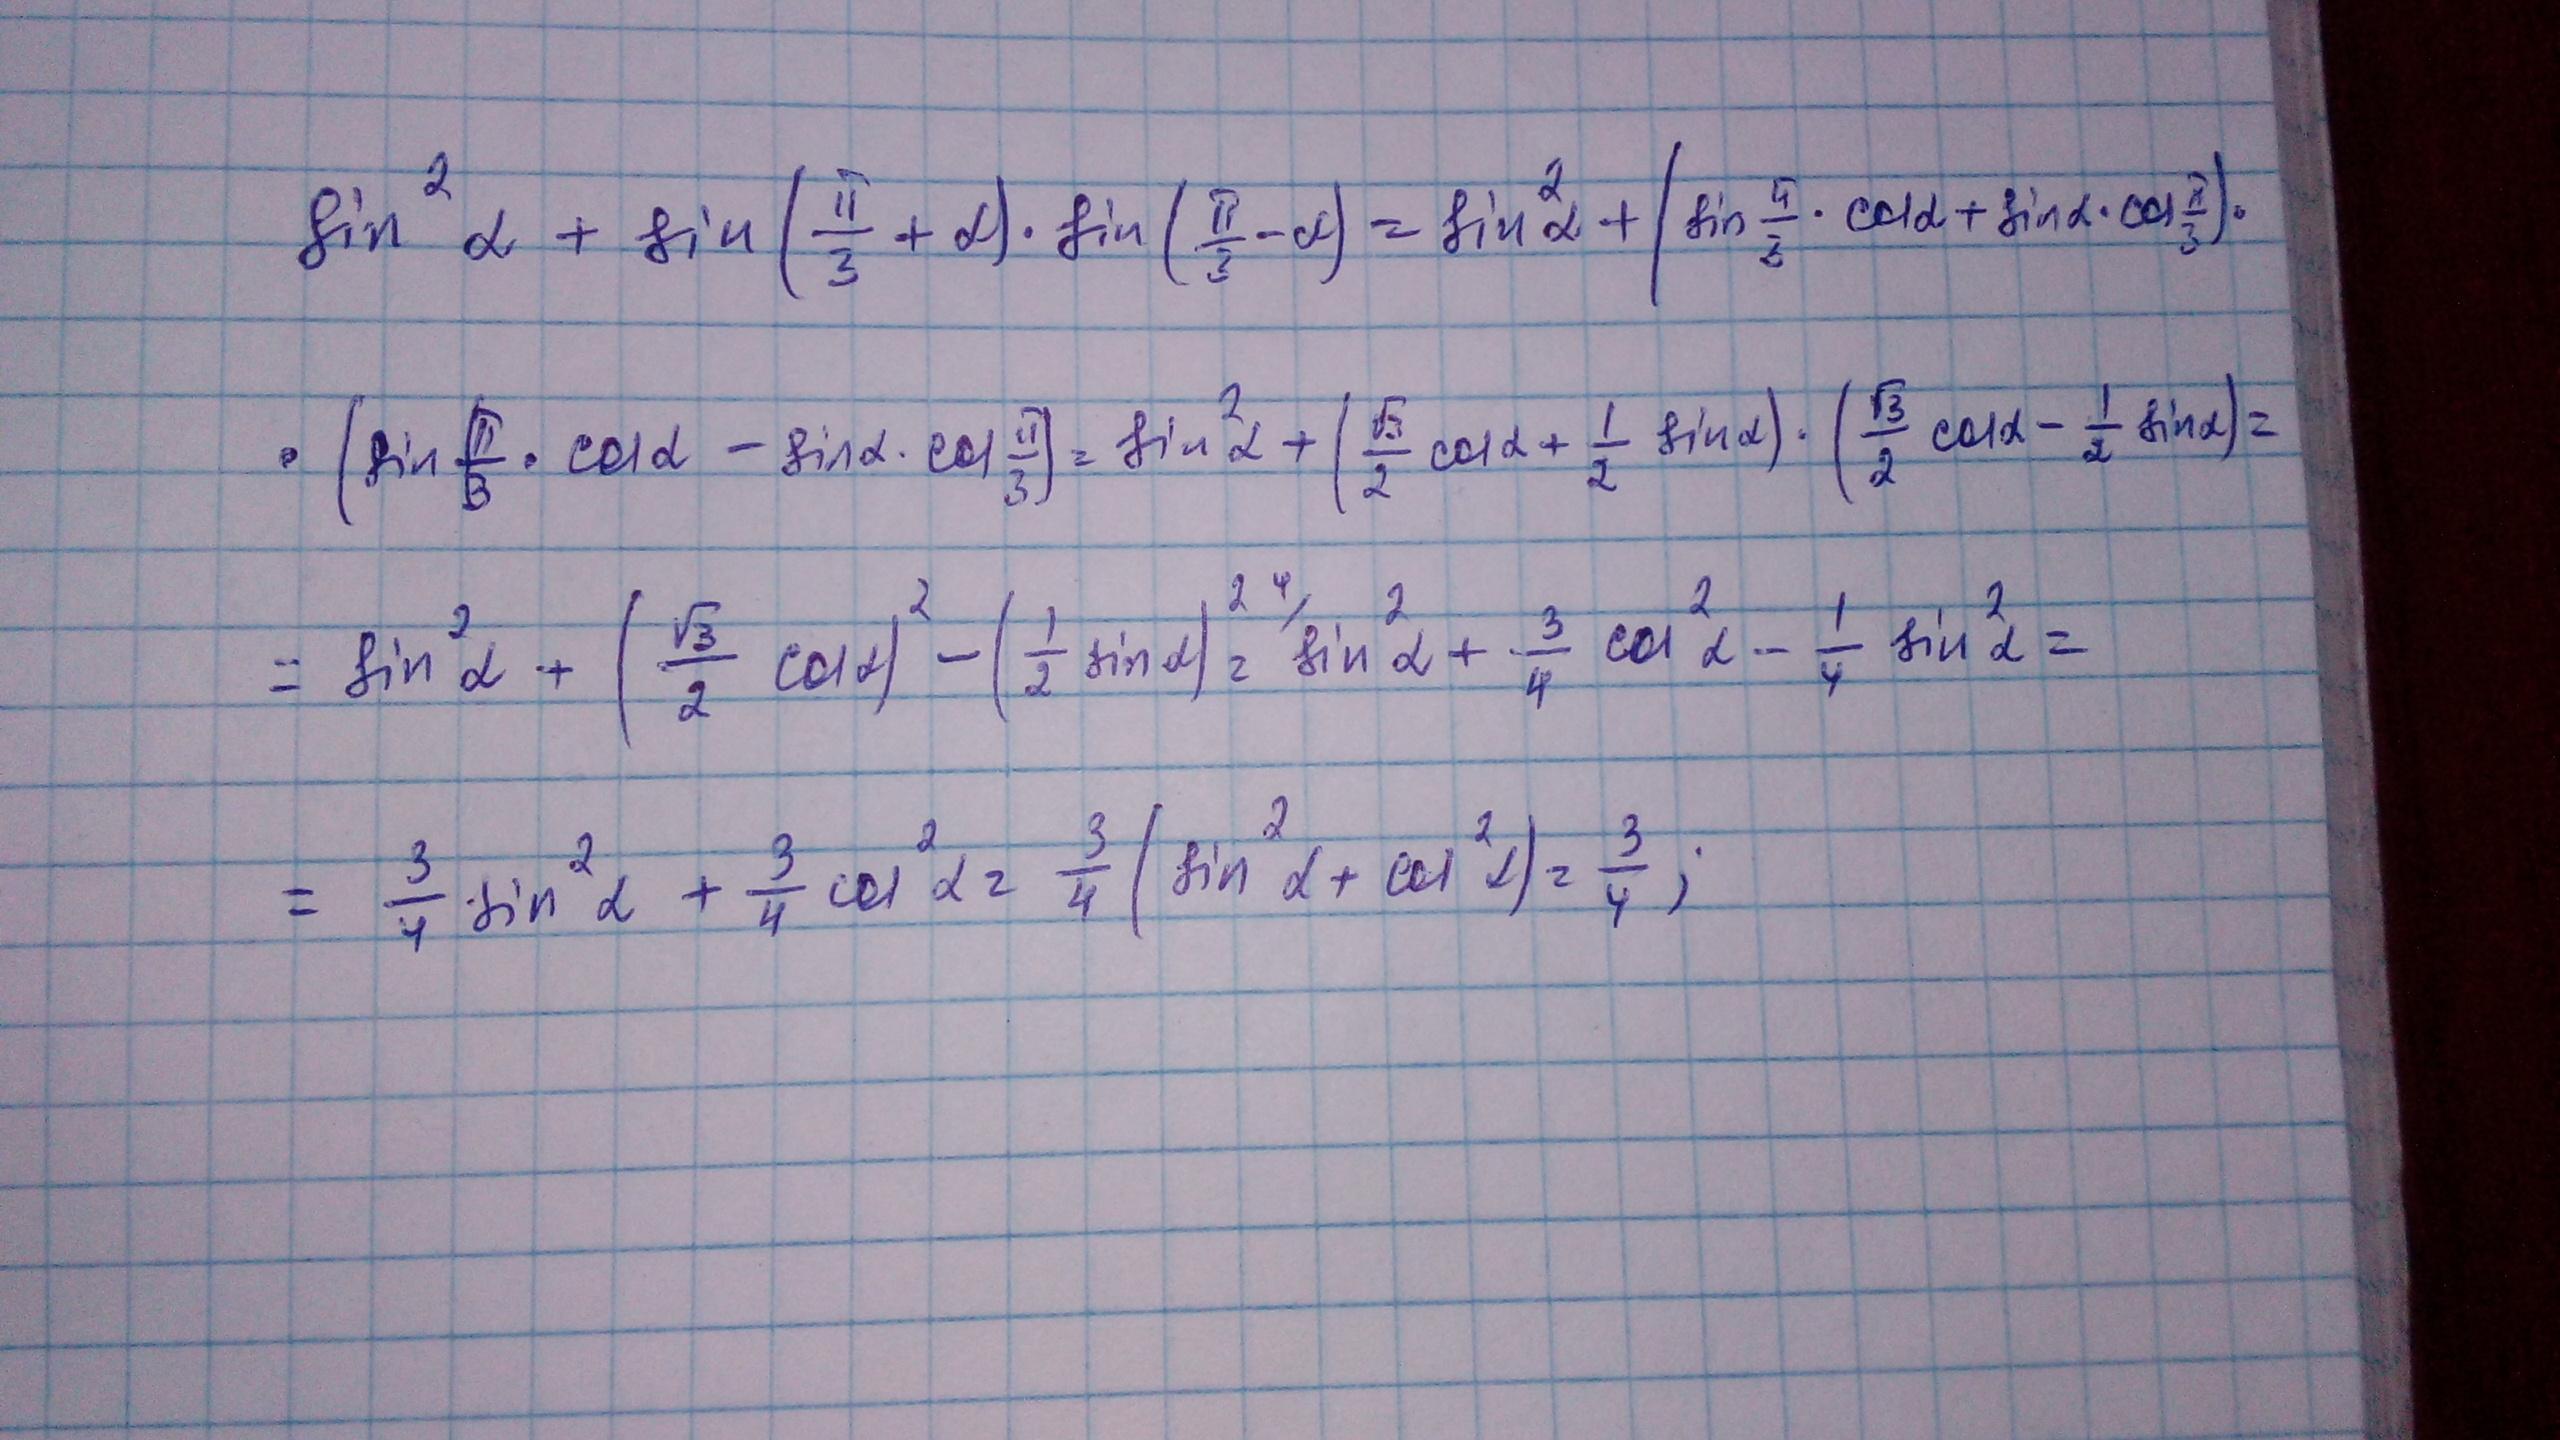 sin²α + sin(π/3 + α)·sin(π/3 - α) = sin²α + (sin π/3 · cosα + sinα · cos π/3)·
· (sin π/3 · cosα - sinα · cos π/3) = sin²α + (√3/2 cosα + 1/2 sinα)·(√3/2 cosα - 1/2 sinα) =
= sin²α + (√3/2 cosα)² - (1/2 sinα)² = ⁴⁄ sin²α + 3/4 cos²α - 1/4 sin²α =
= 3/4 sin²α + 3/4 cos²α = 3/4 (sin²α + cos²α) = 3/4 ;